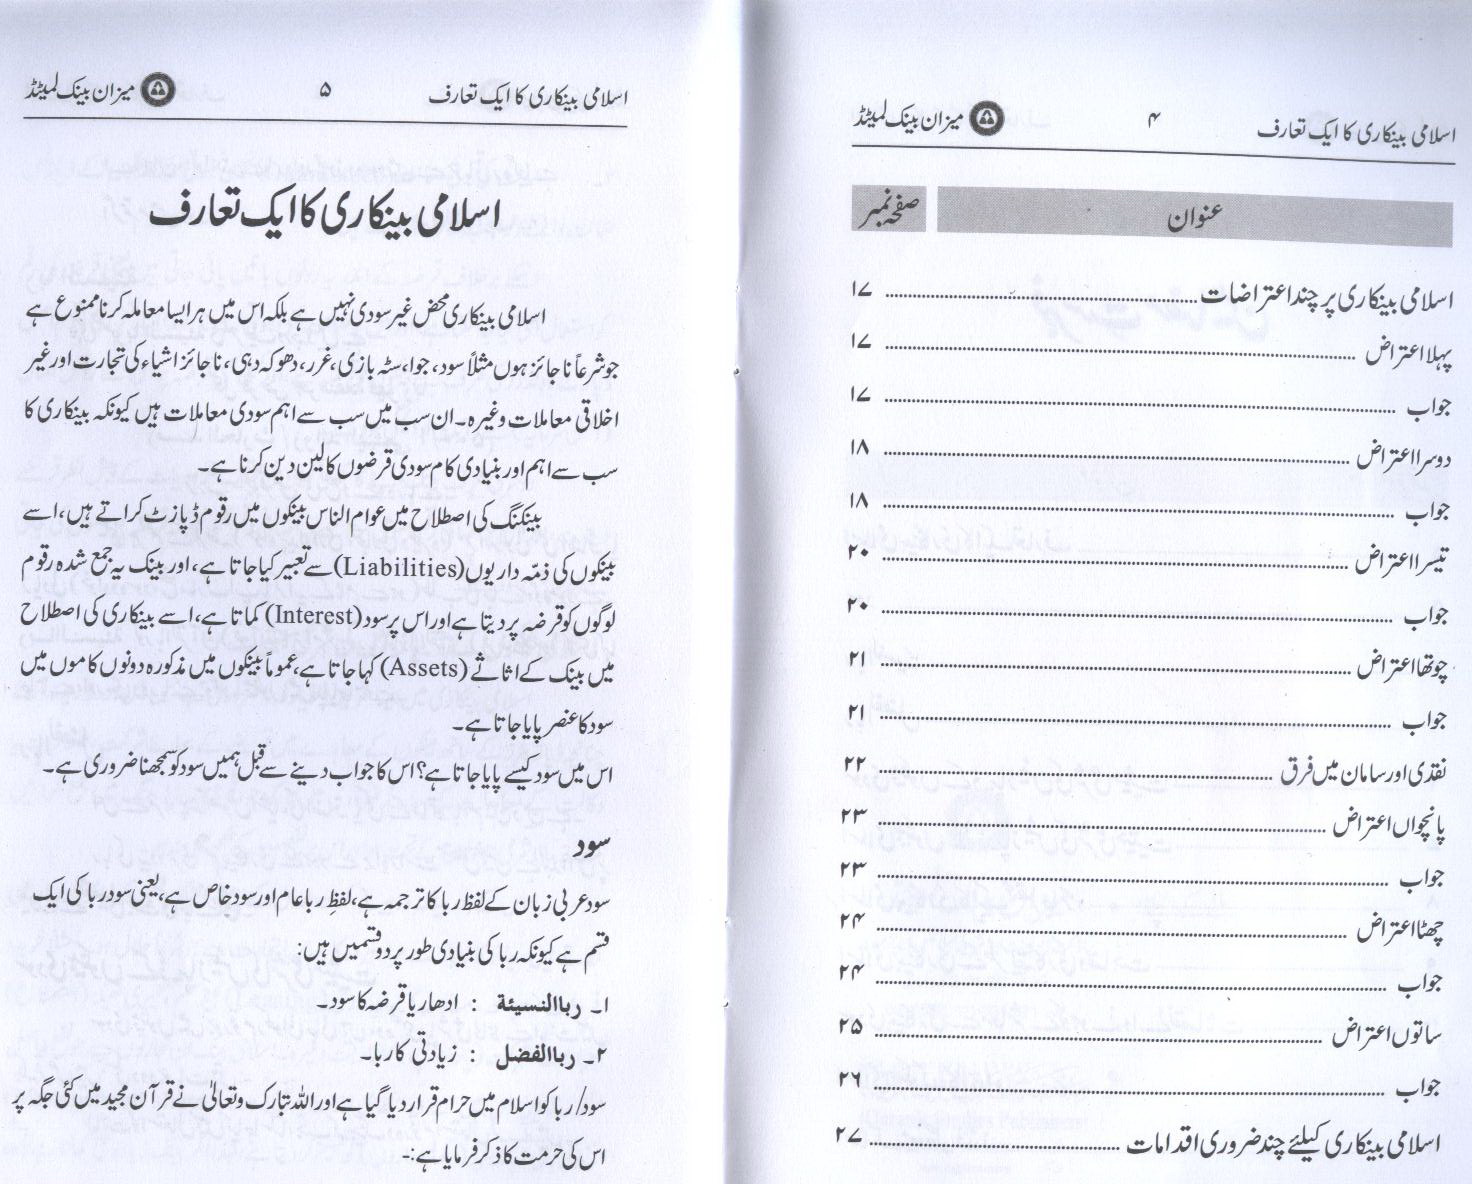 اسلامی بینکاری کا ایک تعارف ۴ میزان بینک لمیٹڈ
عنوان صفحہ نمبر
اسلامی بینکاری پر چند اعتراضات ۱۷
پہلا اعتراض ۱۷
جواب ۱۷
دوسرا اعتراض ۱۸
جواب ۱۸
تیسرا اعتراض ۲۰
جواب ۲۰
چوتھا اعتراض ۲۱
جواب ۲۱
نقدی اور سامان میں فرق ۲۲
پانچواں اعتراض ۲۳
جواب ۲۳
چھٹا اعتراض ۲۴
جواب ۲۴
ساتوں اعتراض ۲۵
جواب ۲۶
اسلامی بینکاری کیلئے چند ضروری اقدامات ۲۷
اسلامی بینکاری کا ایک تعارف ۵ میزان بینک لمیٹڈ
اسلامی بینکاری کا ایک تعارف
اسلامی بینکاری محض غیر سودی نہیں ہے بلکہ اس میں ہر ایسا معاملہ کرنا ممنوع ہے
جو شرعاً ناجائز ہوں مثلاً سود، جوا، سٹہ بازی، غرر، دھوکہ دہی، ناجائز اشیاء کی تجارت اور غیر
اخلاقی معاملات وغیرہ۔ ان سب میں سب سے اہم سودی معاملات ہیں کیونکہ بینکاری کا
سب سے اہم اور بنیادی کام سودی قرضوں کا لین دین کرنا ہے۔
بینکنگ کی اصطلاح میں عوام الناس بینکوں میں رقوم ڈپازٹ کراتے ہیں، اسے
بینکوں کی ذمّہ داریوں (Liabilities) سے تعبیر کیا جاتا ہے، اور بینک یہ جمع شدہ رقوم
لوگوں کو قرضہ پر دیتا ہے اور اس پر سود (Interest) کماتا ہے، اسے بینکاری کی اصطلاح
میں بینک کے اثاثے (Assets) کہا جاتا ہے، عموماً بینکوں میں مذکورہ دونوں کاموں میں
سود کا عنصر پایا جاتا ہے۔
اس میں سود کیسے پایا جاتا ہے؟ اس کا جواب دینے سے قبل ہمیں سود کو سمجھنا ضروری ہے۔
سود
سود عربی زبان کے لفظ ربا کا ترجمہ ہے، لفظِ ربا عام اور سود خاص ہے، یعنی سود ربا کی ایک
قسم ہے کیونکہ ربا کی بنیادی طور پر دو قسمیں ہیں:
۱۔ ربا النسیئة : ادھار یا قرضہ کا سود۔
۲۔ ربا الفضل : زیادتی کا ربا۔
سود/ربا کو اسلام میں حرام قرار دیا گیا ہے اور اللہ تبارک وتعالیٰ نے قرآن مجید میں کئی جگہ پر
اس کی حرمت کا ذکر فرمایا ہے:-